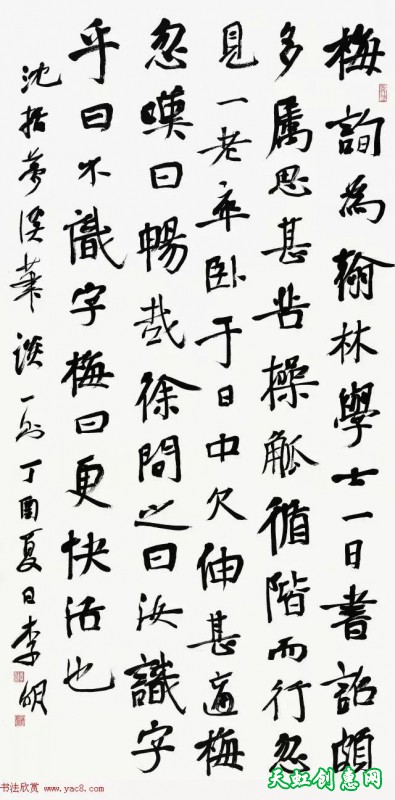 梅詢為翰林學士一日書詔頗
多屬思甚苦操觚循階而行忽
見一老卒臥于日中欠伸甚適梅
忽嘆曰暢哉徐問之曰汝識字
乎曰不識字梅曰更快活也
沈括夢溪筆談一則丁酉夏日李明
书法欣赏 www.yac8.com
天虹创惠网